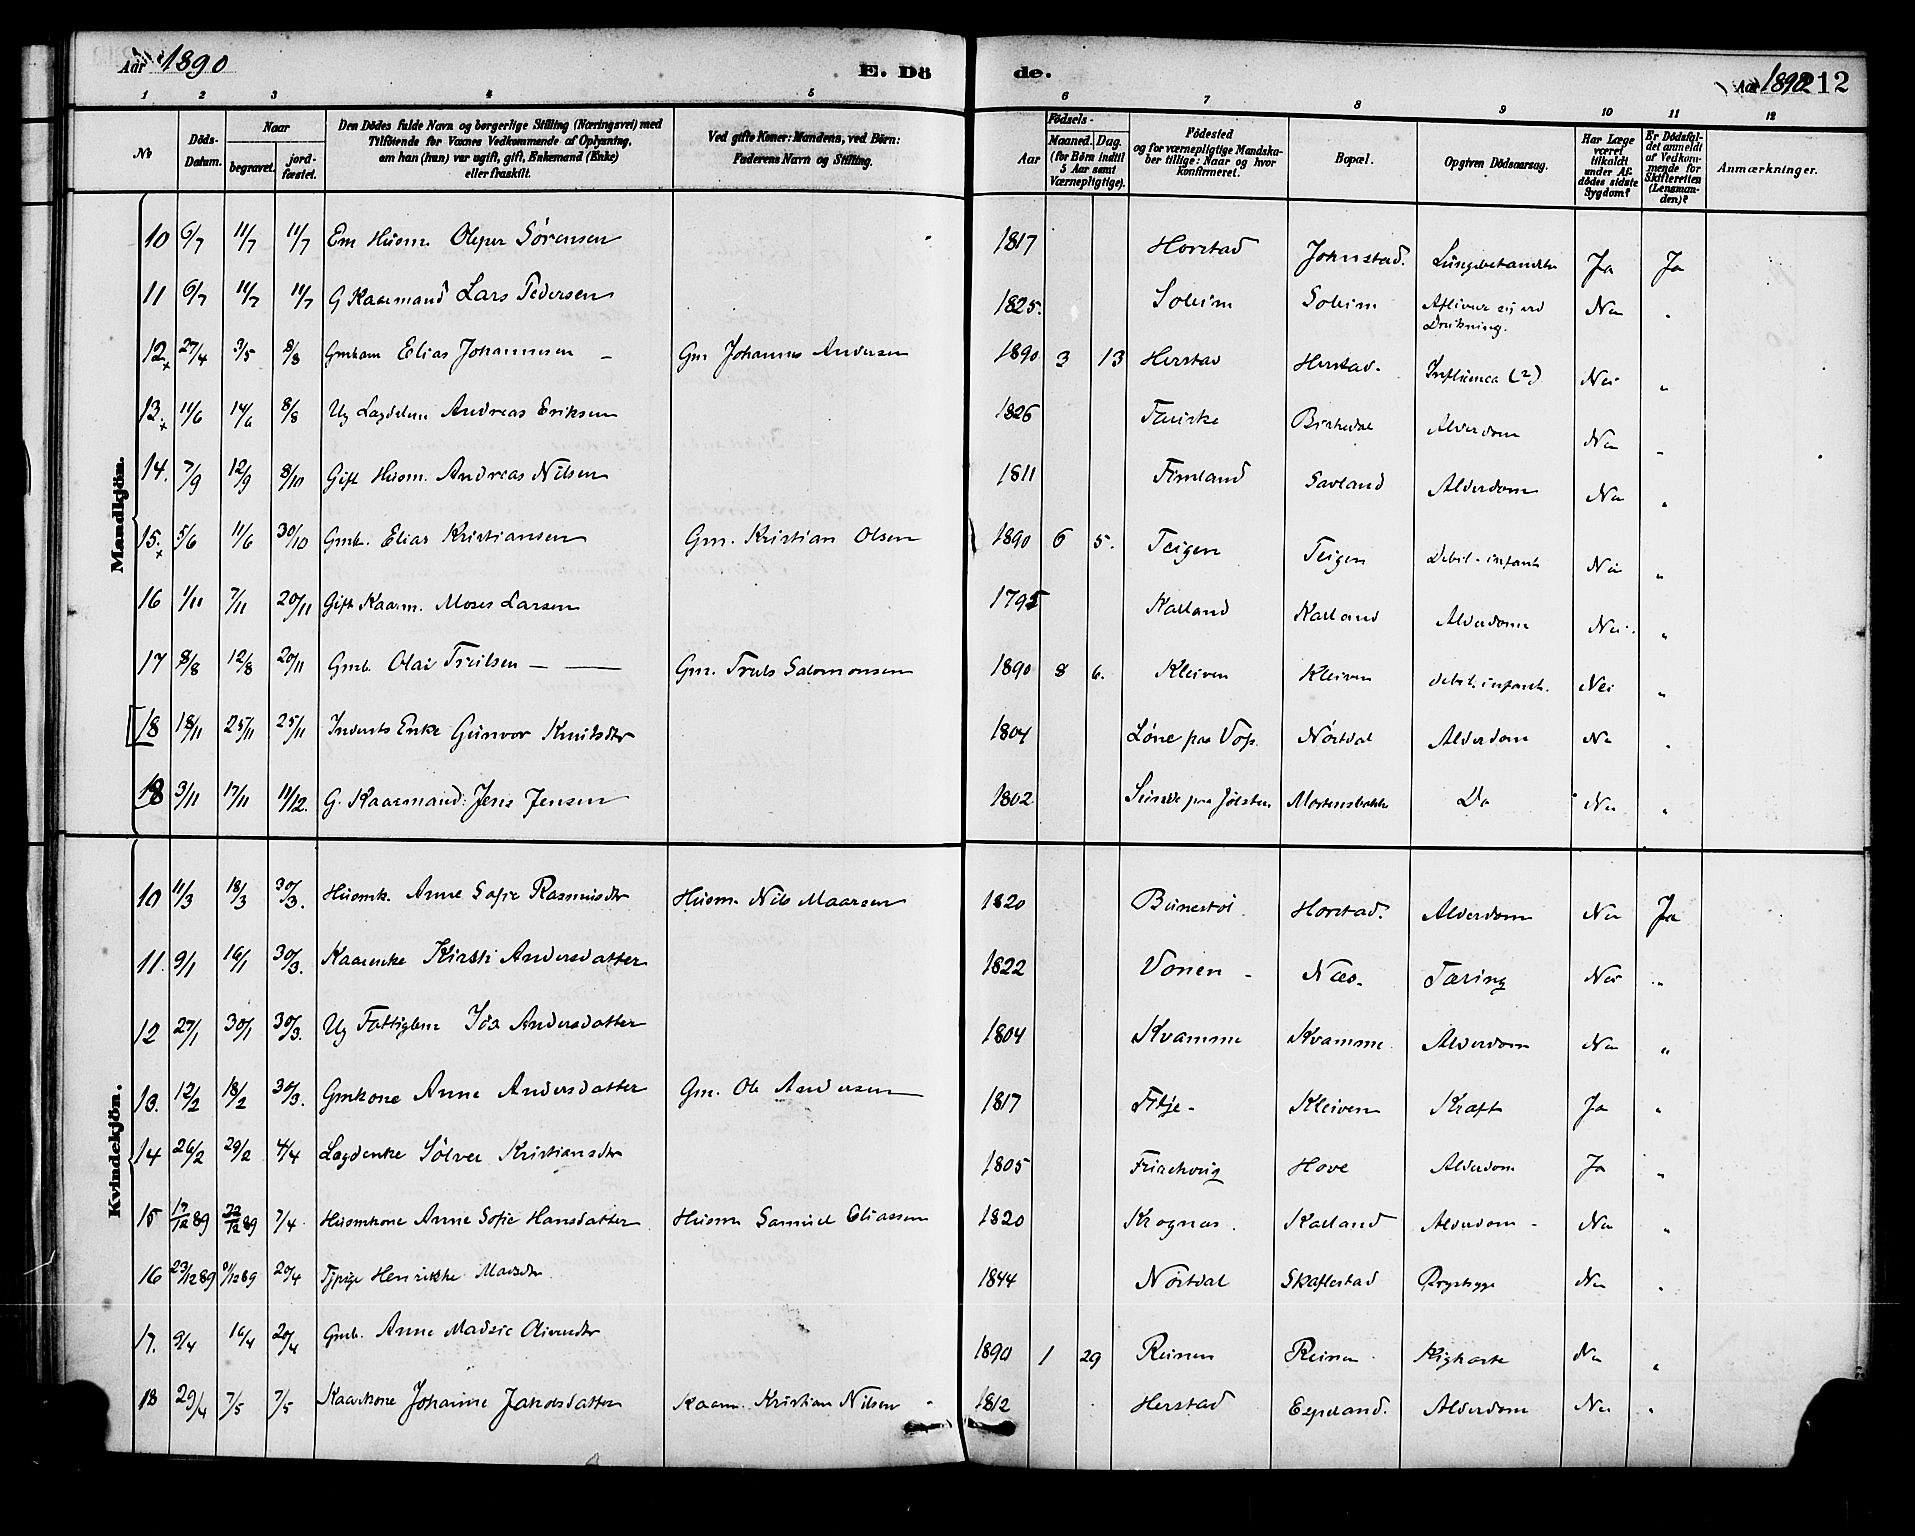 Aar 1890
E. Dö
de.
Aar 1890
212
1 2 3 4 5 6 7 8 9 10 11 12
No
Döds-Datum.
Naar
begravet.
jord-fæstet.
Den Dödes fulde Navn og borgerlige Stilling (Næringsvei) med
Tilföiende for Voxnes Vedkommende af Oplysning,
om han (hun) var ugift, gift, Enkemand (Enke)
eller fraskilt.
Ved gifte Koner: Mandens, ved Börn:
Faderens Navn og Stilling.
Födsels-
Aar
Maaned. Dag.
(for Börn indtil
5 Aar samt
Værnepligtige).
Födested
og for værnepligtige Mandska-
ber tillige: Naar og hvor
konfirmeret.
Bopæl.
Opgiven Dödsaarsag.
Har Læge
været
tilkaldt
under Af-
dödes sidste
Sygdom?
Er Dödsfal-
det anmeldt
af Vedkom-
mende for
Skifteretten
(Lensman-
den)?
Anmærkninger.
Mandkjön.
10 6/7 11/7 11/7 Em Husm. Sörensen 1817 Horstad Johnstad. Ja Ja
11 6/7 11/7 11/7 G Kaarmand Lars Pedersen 1825. Soleim Soleim Nei "
12 27/4 3/5 8/8 Elias Johannesen Gm Johannes Andersen 1890 3 13 Herstad Herstad. Influenca (?) Nei "
13 11/6 14/6 8/8 Ug Lægdslem Andreas Eriksen 1826 Birkedal Alderdom Nei "
14. 7/9 12/9 8/10 Gift Husm. Andreas Nilsen 1811 Fimland Savland Alderdom Nei "
15. 5/6 11/6 30/10 Gmb. Elias Kristiansen Gm. Kristian Olsen 1890 6 5. Teigen Teigen Debil. infant. Nei "
16 1/11 7/11 20/11 Gift Kaarm. Moses Larsen 1795 Kalland Kalland Alderdom Nei. "
17 8/8 12/8 20/11 Gmb. Olai Trulsen Gm. Truls Salomonsen 1890 8 6. Kleiven Kleiven debil. infant. Nei "
18 18/11 25/11 25/11 Inderts Enke Gunvor Knutsdtr 1804 Löne paa Vos. Nörtdal Alderdom Nei "
18 3/11 17/11 11/12. G. Kaarmand: Jens Jensen 1802 Sunde paa Jölster Mortensbakk Do Nei "
Kvindekjön.
10 11/3 18/3 30/3. Husmk. Anne Sofie Rasmusdtr Husm. Nils Maarsen 1820 Bunestöl. Horstad. Alderdom Nei Ja
11. 9/1 16/1 30/3. Kaarenke Kirsti Andersdatter 1822 Vonen Næs. Tæring Nei "
12 27/1 30/1 30/3. Ug Fattiglem Andersdatter 1804 Kvamme Kvamme Alderdom Nei "
13. 12/2 18/2 30/3. Gmkone Anne Andersdatter Gm. Ole Andersen 1817 Fitje. Kleiven Kræft Ja "
14 26/2 29/2 4/4 Lægdenke Sölvei Kristiansdtr 1805 Hove Alderdom Ja "
15 17/12 89 22/12 89 7/4 Husmkone Anne Sofie Hansdatter Husm Samuel Eliassen 1820 Krognæs. Kalland Alderdom Nei "
16 23/12 89 31/12 89 20/4 Tjpige Henrikke Madsdtr 1844 Nörtdal Skaflestad Brystsyge Nei "
17. 9/4 16/4 20/4 Gmb. Anne Madsie 1890 1 29 Reinen Reinen Kighoste Nei "
18 29/4 7/5 7/5 Kaarkone Johanne Jakobsdatter Kaarm. Kristian Nilsen 1812 Herstad Espeland. Alderdom Nei "